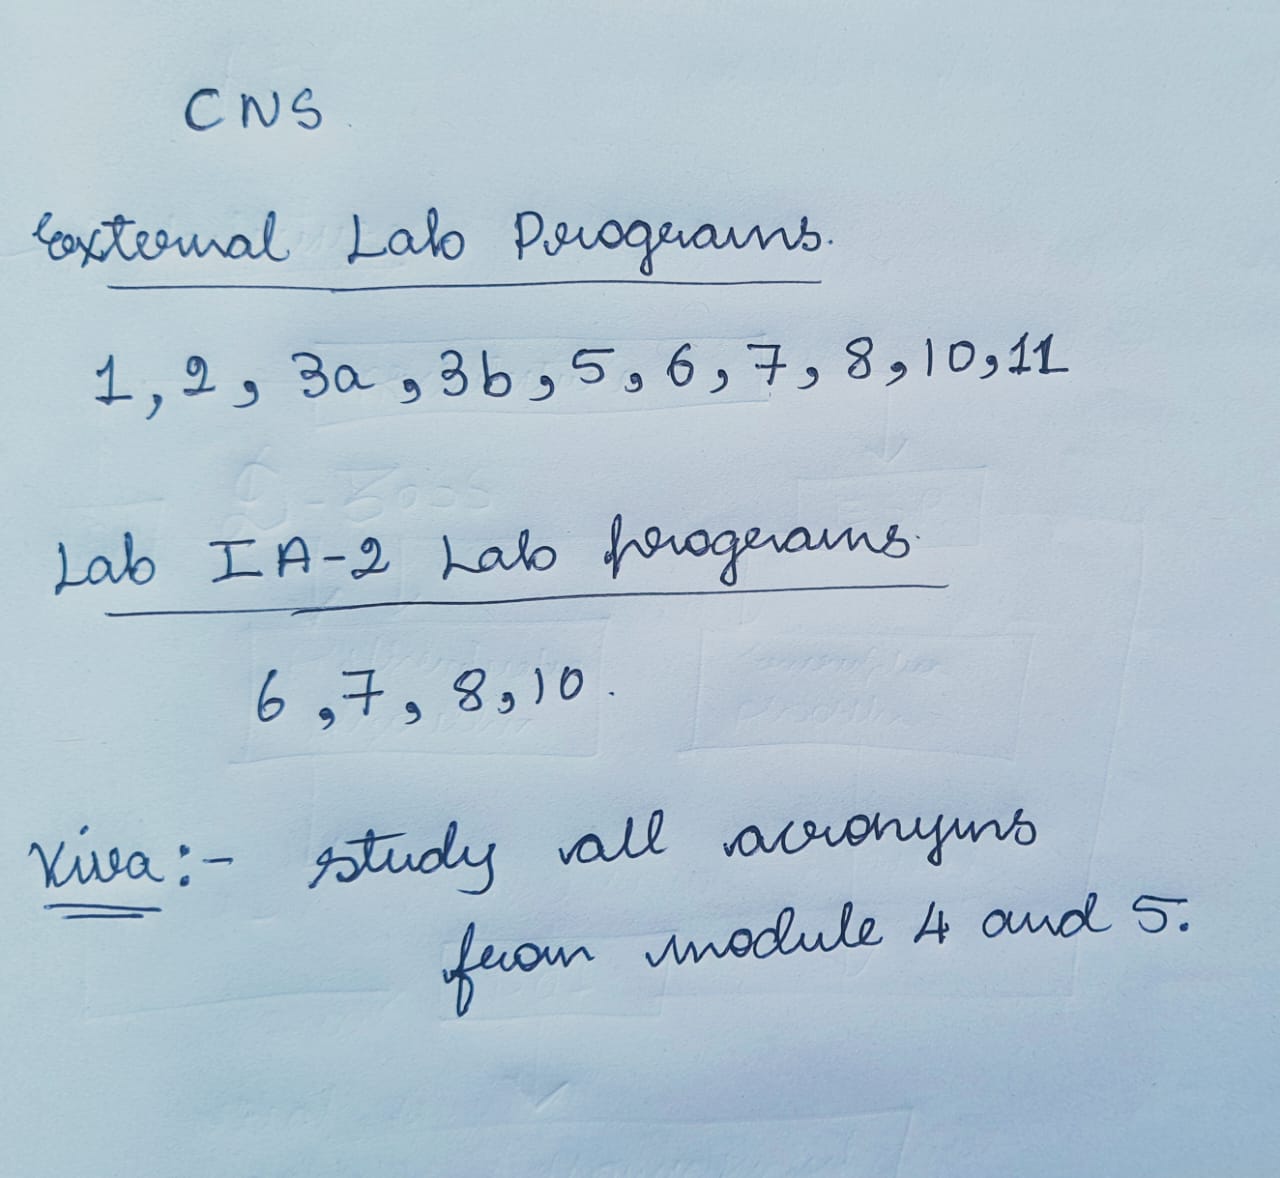 CNS
External Lab Programs.
1, 2, 3a, 3b, 5, 6, 7, 8, 10, 11
Lab IA-2 Lab programs.
6, 7, 8, 10.
Viva:- study all acronyms
from module 4 and 5.